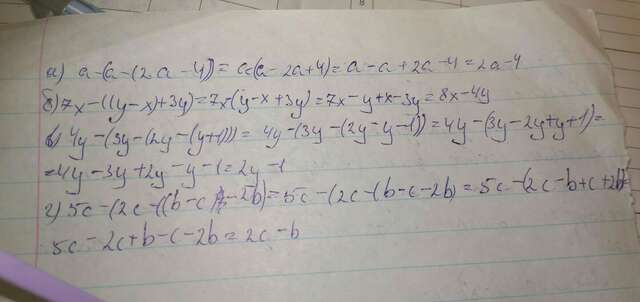 а) a-(a-(2a-4))=a-(a-2a+4)=a-a+2a-4=2a-4
б) 7x-((y-x)+3y)=7x(y-x+3y)=7x-y+x-3y=8x-4y
в) 4y-(3y-(2y-(y+1)))=4y-(3y-(2y-y-1))=4y-(3y-2y+y+1)=
=4y-3y+2y-y-1=2y-1
г) 5c-(2c-((b-c)-2b)=5c-(2c-(b-c-2b)=5c-(2c-b+c+2b)=
5c-2c+b-c-2b=2c-b